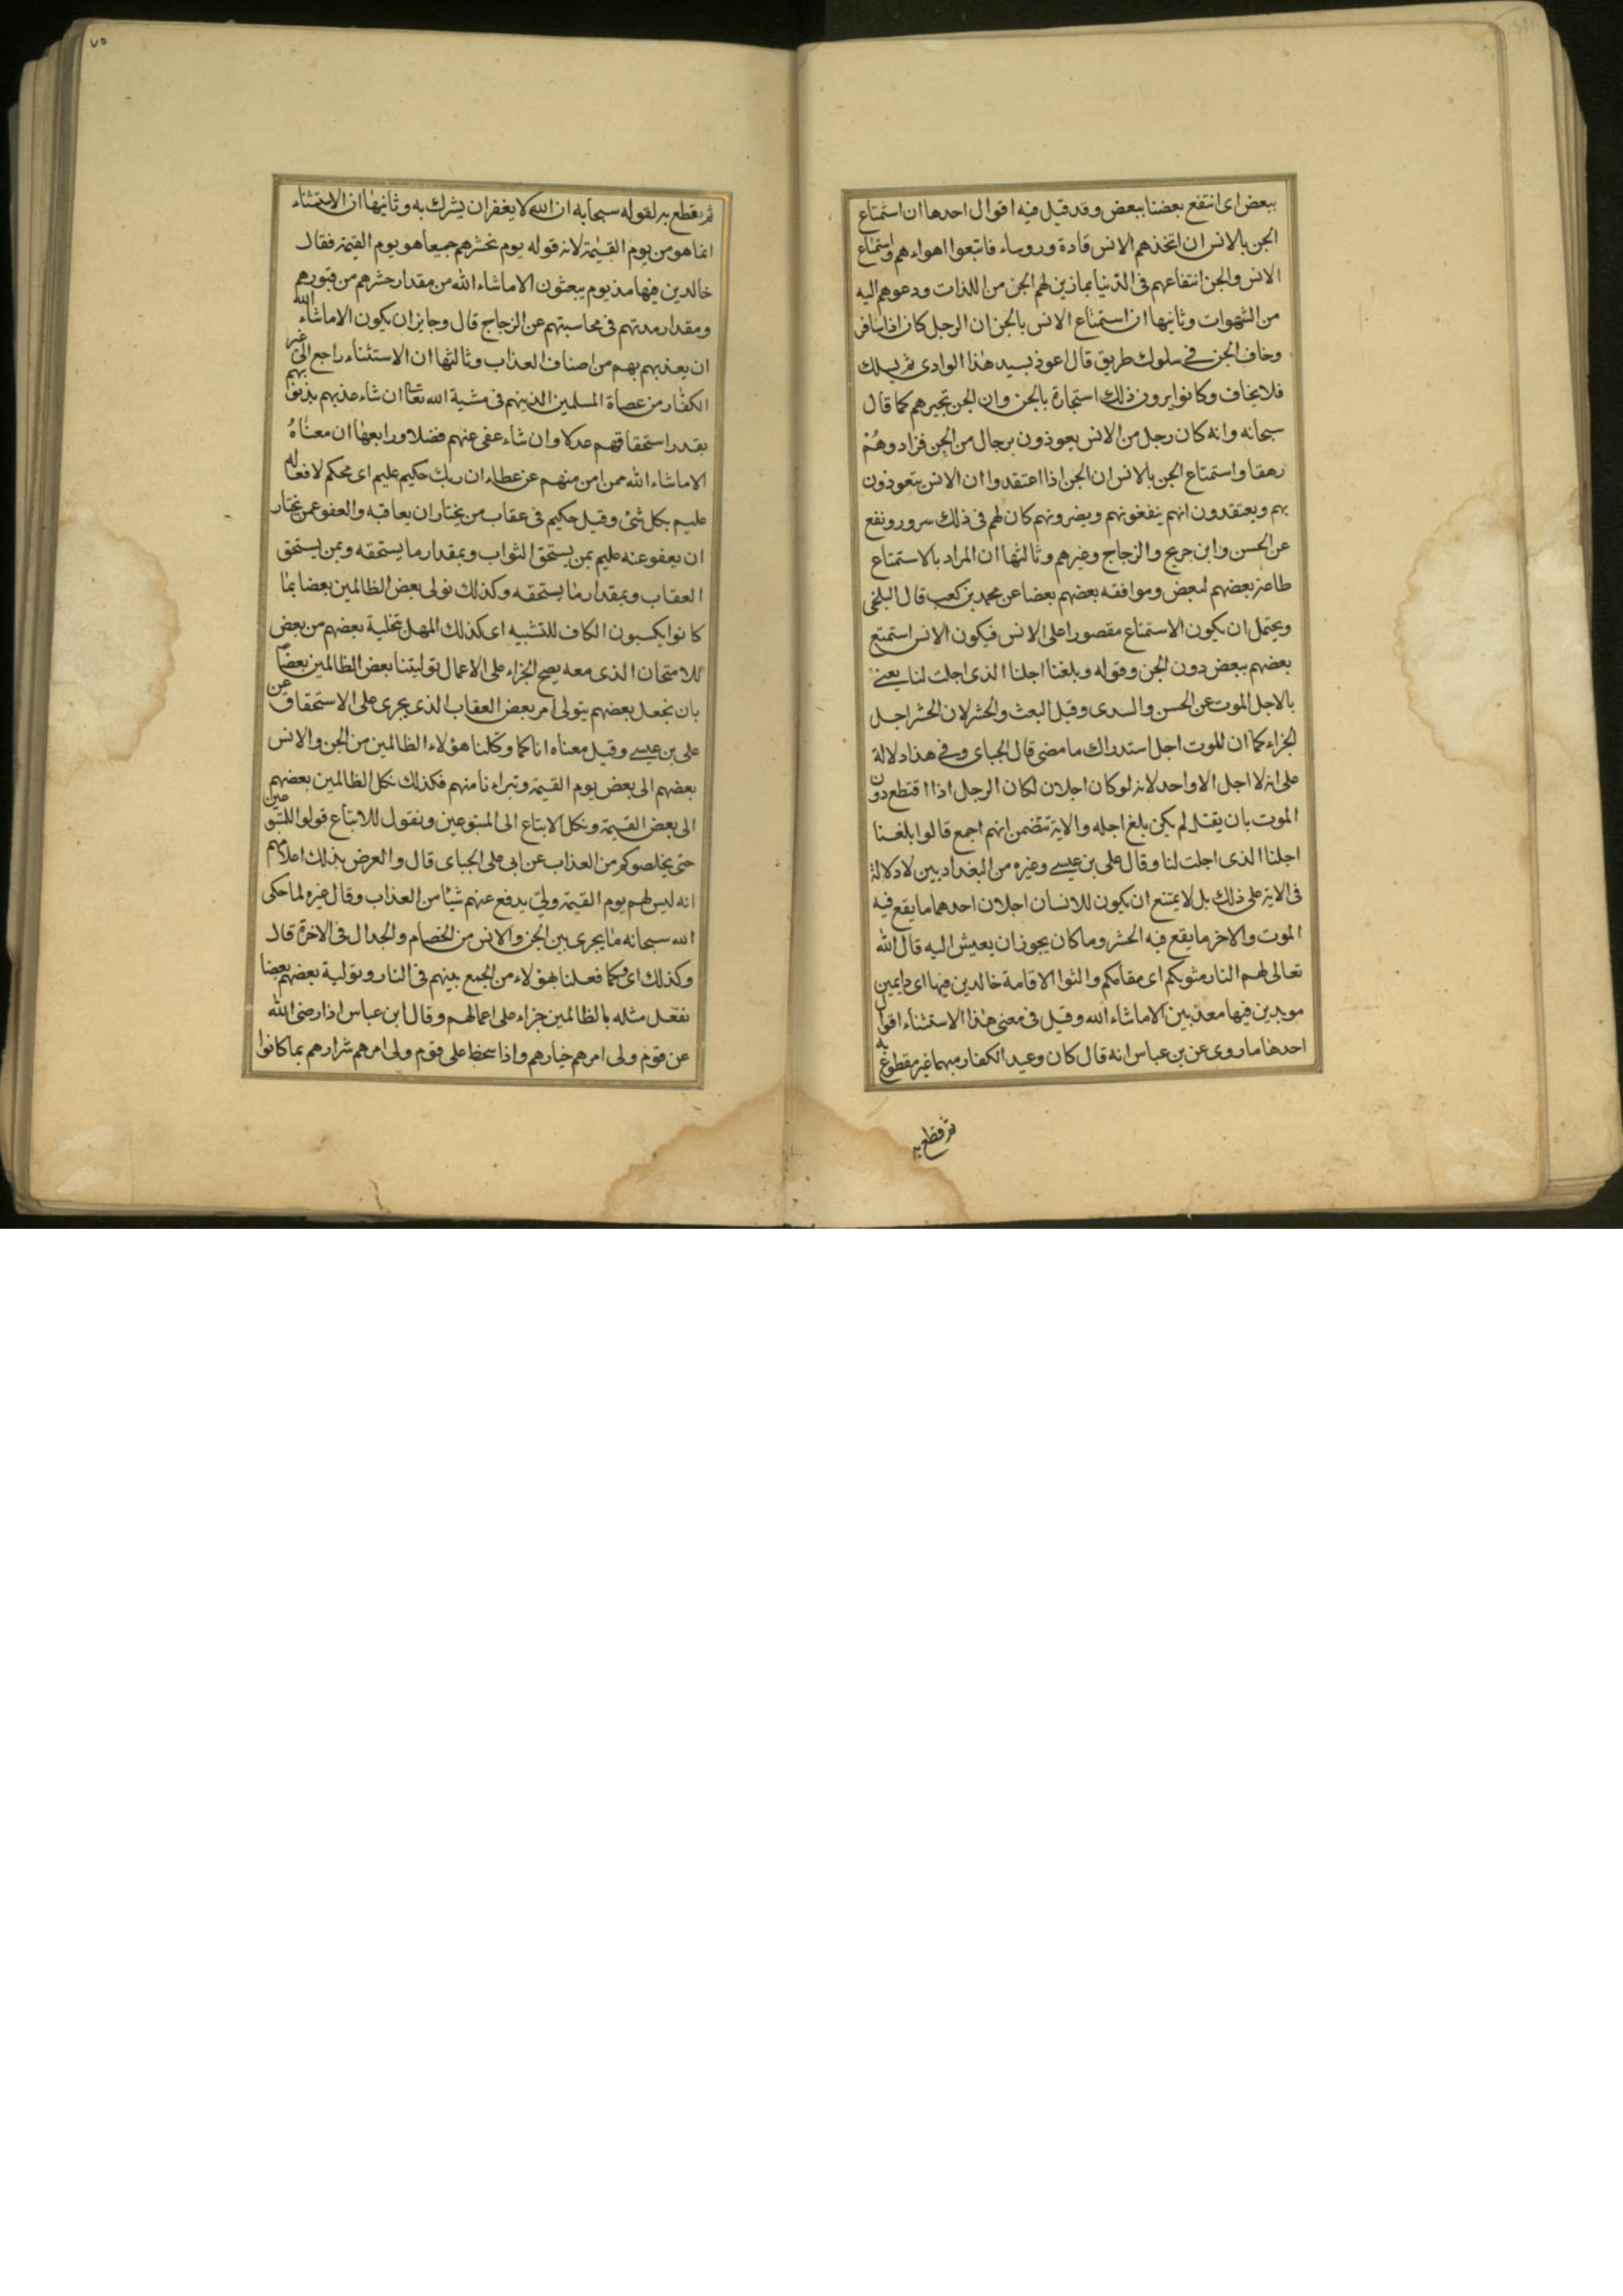 ببعض اى انتفع بعضنا ببعض وقد قيل فيه اقوال احدها ان استمتاع
الجن بالانس ان اتخذهم الانس قادة وروساء فاتبعوا اهواءهم واستمتاع
الانس والجن انتفاعهم فى الدنيا بما زين لهم الجن من اللذات ودعوهم اليه
من الشهوات وثانيها ان استمتاع الانس بالجن ان الرجل كان اذا سافر
وخاف الجن فى سلوك طريق قال اعوذ بسيد هذا الوادى ثم يسلك
فلا يخاف وكانوا يرون ذلك استجارة بالجن وان الجن تجيرهم كما قال
سبحانه وانه كان رجل من الانس يعوذون برجال من الجن فزادوهم
رهقا واستمتاع الجن بالانس ان الجن اذا اعتقدوا ان الانس يتعوذون
بهم ويعتقدون انهم ينفعونهم ويضرونهم كان لهم فى ذلك سرور ونفع
عن الحسن وابن جريج والزجاج وغيرهم وثالثها ان المراد بالاستمتاع
طاعة بعضهم لبعض وموافقه بعضهم بعضا عن محمد بن كعب قال البلخى
ويحتمل ان يكون الاستمتاع مقصورا على الانس فيكون الانس استمتع
بعضهم ببعض دون الجن وقوله وبلغنا اجلنا الذى اجلت لنا يعنى
بالاجل الموت عن الحسن والسدى وقيل البعث والحشر لان الحشر اجل
الجزاء كما ان للموت اجل استدراك ما مضى قال الجباى وفى هذا دلالة
على انه لا اجل الا واحد لانه لو كان اجلان لكان الرجل اذا اقتطع دون
الموت بان يقتل لم يكن بلغ اجله والاية تتضمن انهم اجمع قالوا بلغنا
اجلنا الذى اجلت لنا وقال على بن عيسى وغيره من البغداديين لا دلالة
فى الاية على ذلك بل لا يمتنع ان يكون للانسان اجلان احدهما ما يقع فيه
الموت والاخر ما يقع فيه الحشر وما كان يجوز ان يعيش اليه قال الله
تعالى لهم النار مثويكم اى مقامكم والثوا الاقامة خالدين فيها اى دايمين
موبدين فيها معذبين الا ما شاء الله وقيل فى معنى هذا الاستثناء اقوال
احدها ما روى عن بن عباس انه قال كان وعيد الكفار مبهما غير مقطوع به
ثم قطع به
٧٥
ثم يقطع به لقوله سبحابه ان الله لا يغفر ان يشرك به وثانيها ان الاستثناء
انما هو من يوم القيمة لانه قوله يوم نحشرهم جميعا هو يوم القيمة فقال
خالدين فيها مذ يوم يبعثون الا ما شاء الله من مقدار حشرهم من قبورهم
ومقدار مدتهم فى محاسبتهم عن الزجاج قال وجايز ان يكون الا ما شاء الله
ان يعذبهم بهم من اصناف العذاب وثالثها ان الاستثناء راجع الى غير
الكفار من عصاة المسلمين الذينهم فى مشية الله تعا ان شاء عذبهم بذنوبهم
بقدر استحقاقهم عدلا وان شاء عفى عنهم فضلا ورابعها ان معناه
الا ما شاء الله ممن امن منهم عن عطاء ان ربك حكيم عليم اى محكم لافعاله
عليم بكل شئ وقيل حكيم فى عقاب من يختار ان يعاقبه والعفو عمن يختار
ان يعفو عنه عليم بمن يستحق الثواب وبمقدار ما يستحقه وبمن يستحق
العقاب وبمقدار ما يستحقه وكذلك نولى بعض الظالمين بعضا بما
كانوا يكسبون الكاف للتشبيه اى كذلك المهل بتخلية بعضهم من بعض
للامتحان الذى معه يصح الجزاء على الاعمال توليتنا بعض الظالمين بعضا
بان نجعل بعضهم يتولى امر بعض العقاب الذى يجرى على الاستحقاق عن
على بن عيسى وقيل معناه اناكما وكلنا هؤلاء الظالمين من الجن والانس
بعضهم الى بعض يوم القيمة وتبراءنا منهم فكذلك نكل الظالمين بعضهم
الى بعض القيمة ونكل الاتباع الى المتبوعين ونقول للاتباع قولوا للمتبوعين
حتى يخلصوكم من العذاب عن ابى على الجباى قال والغرض بذلك اعلامهم
انه ليس لهم يوم القيمة ولى يدفع عنهم شيئا من العذاب وقال غيره لما حكى
الله سبحانه ما يجرى بين الجن والانس من الخصام والجدال فى الاخرة قال
وكذلك اى وكما فعلنا بهؤلاء من الجمع بينهم فى النار وتولية بعضهم بعضا
نفعل مثله بالظالمين جزاء على اعمالهم وقال ابن عباس اذا رضى الله
عن قوم ولى امرهم خيارهم واذا سخط على قوم ولى امرهم شرارهم بما كانوا